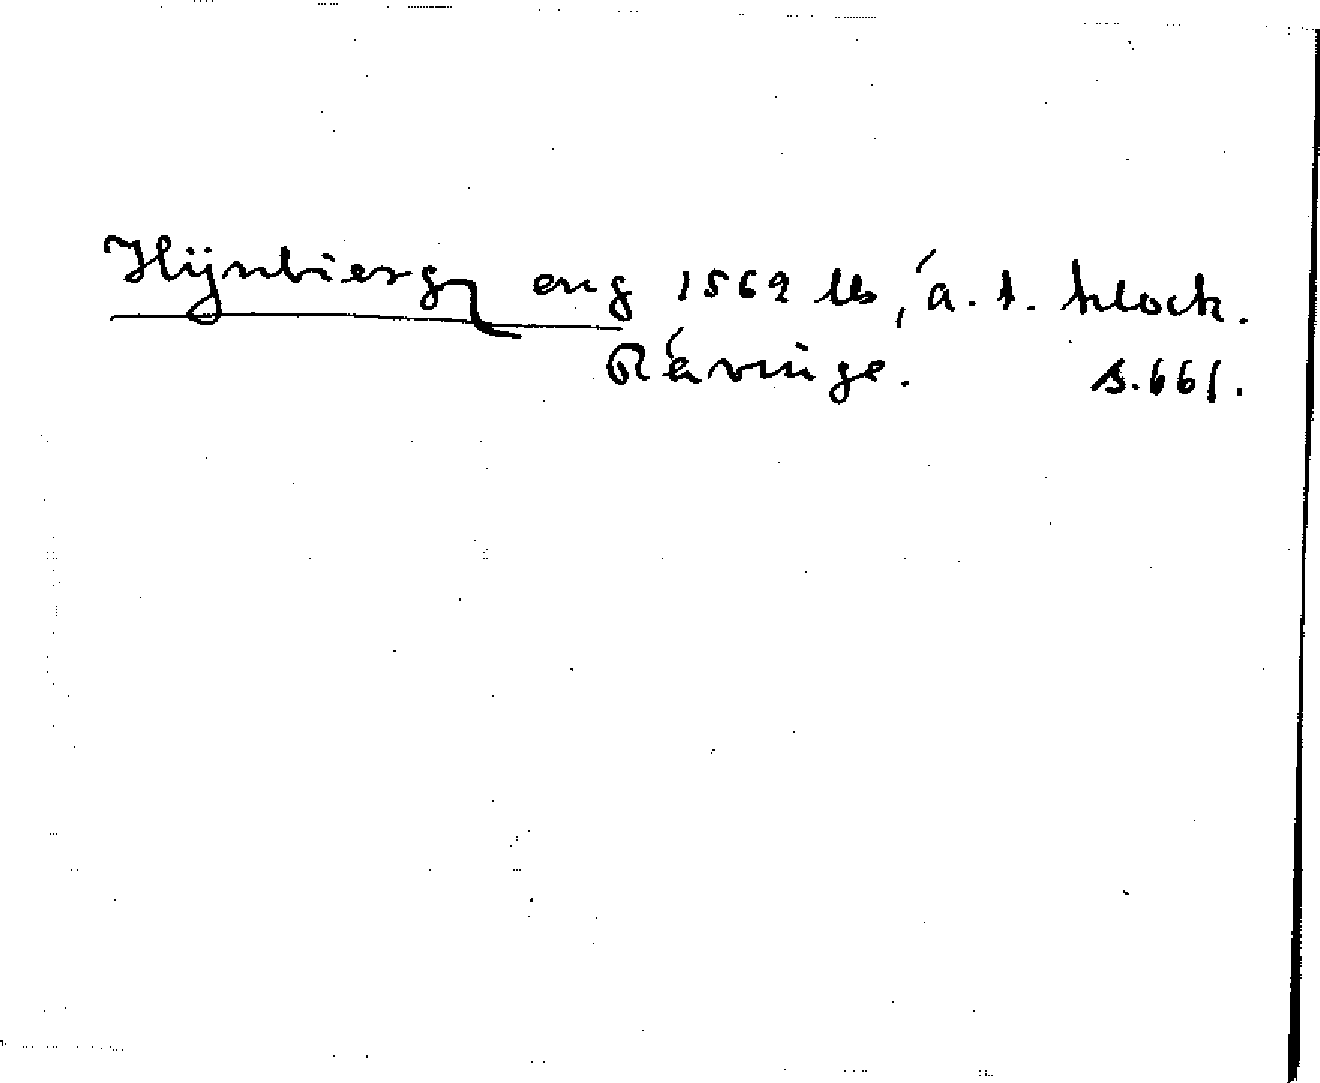 Hÿnbierg eng 1569 lb, á. t. klock.
Rávinge. s.661.